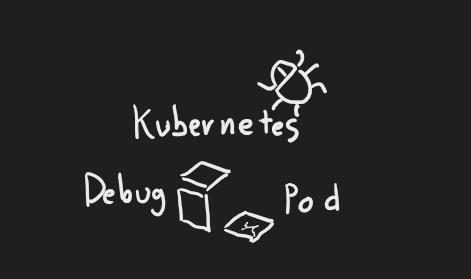 Kubernetes
Debug Pod